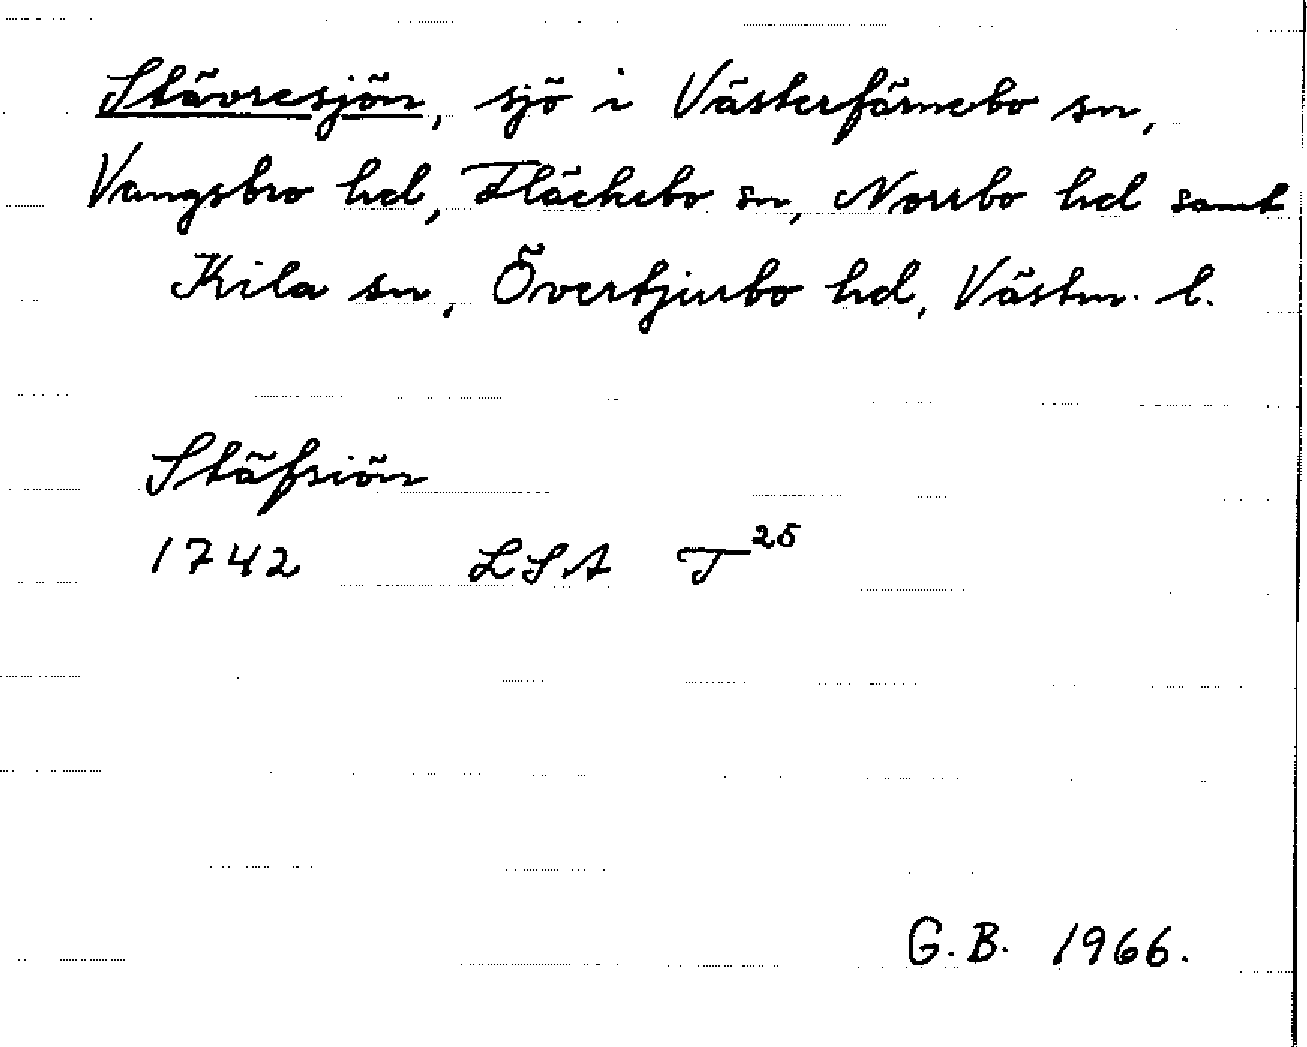 Stävresjön, sjö i Västerfärnebo sn,
Vangsbro hd, Fläckebo sn, Norrbo hd samt
Kila sn, Övertjurbo hd, Västm. l.
Stäfsiön
1742 LSA T 25
G.B. 1966.